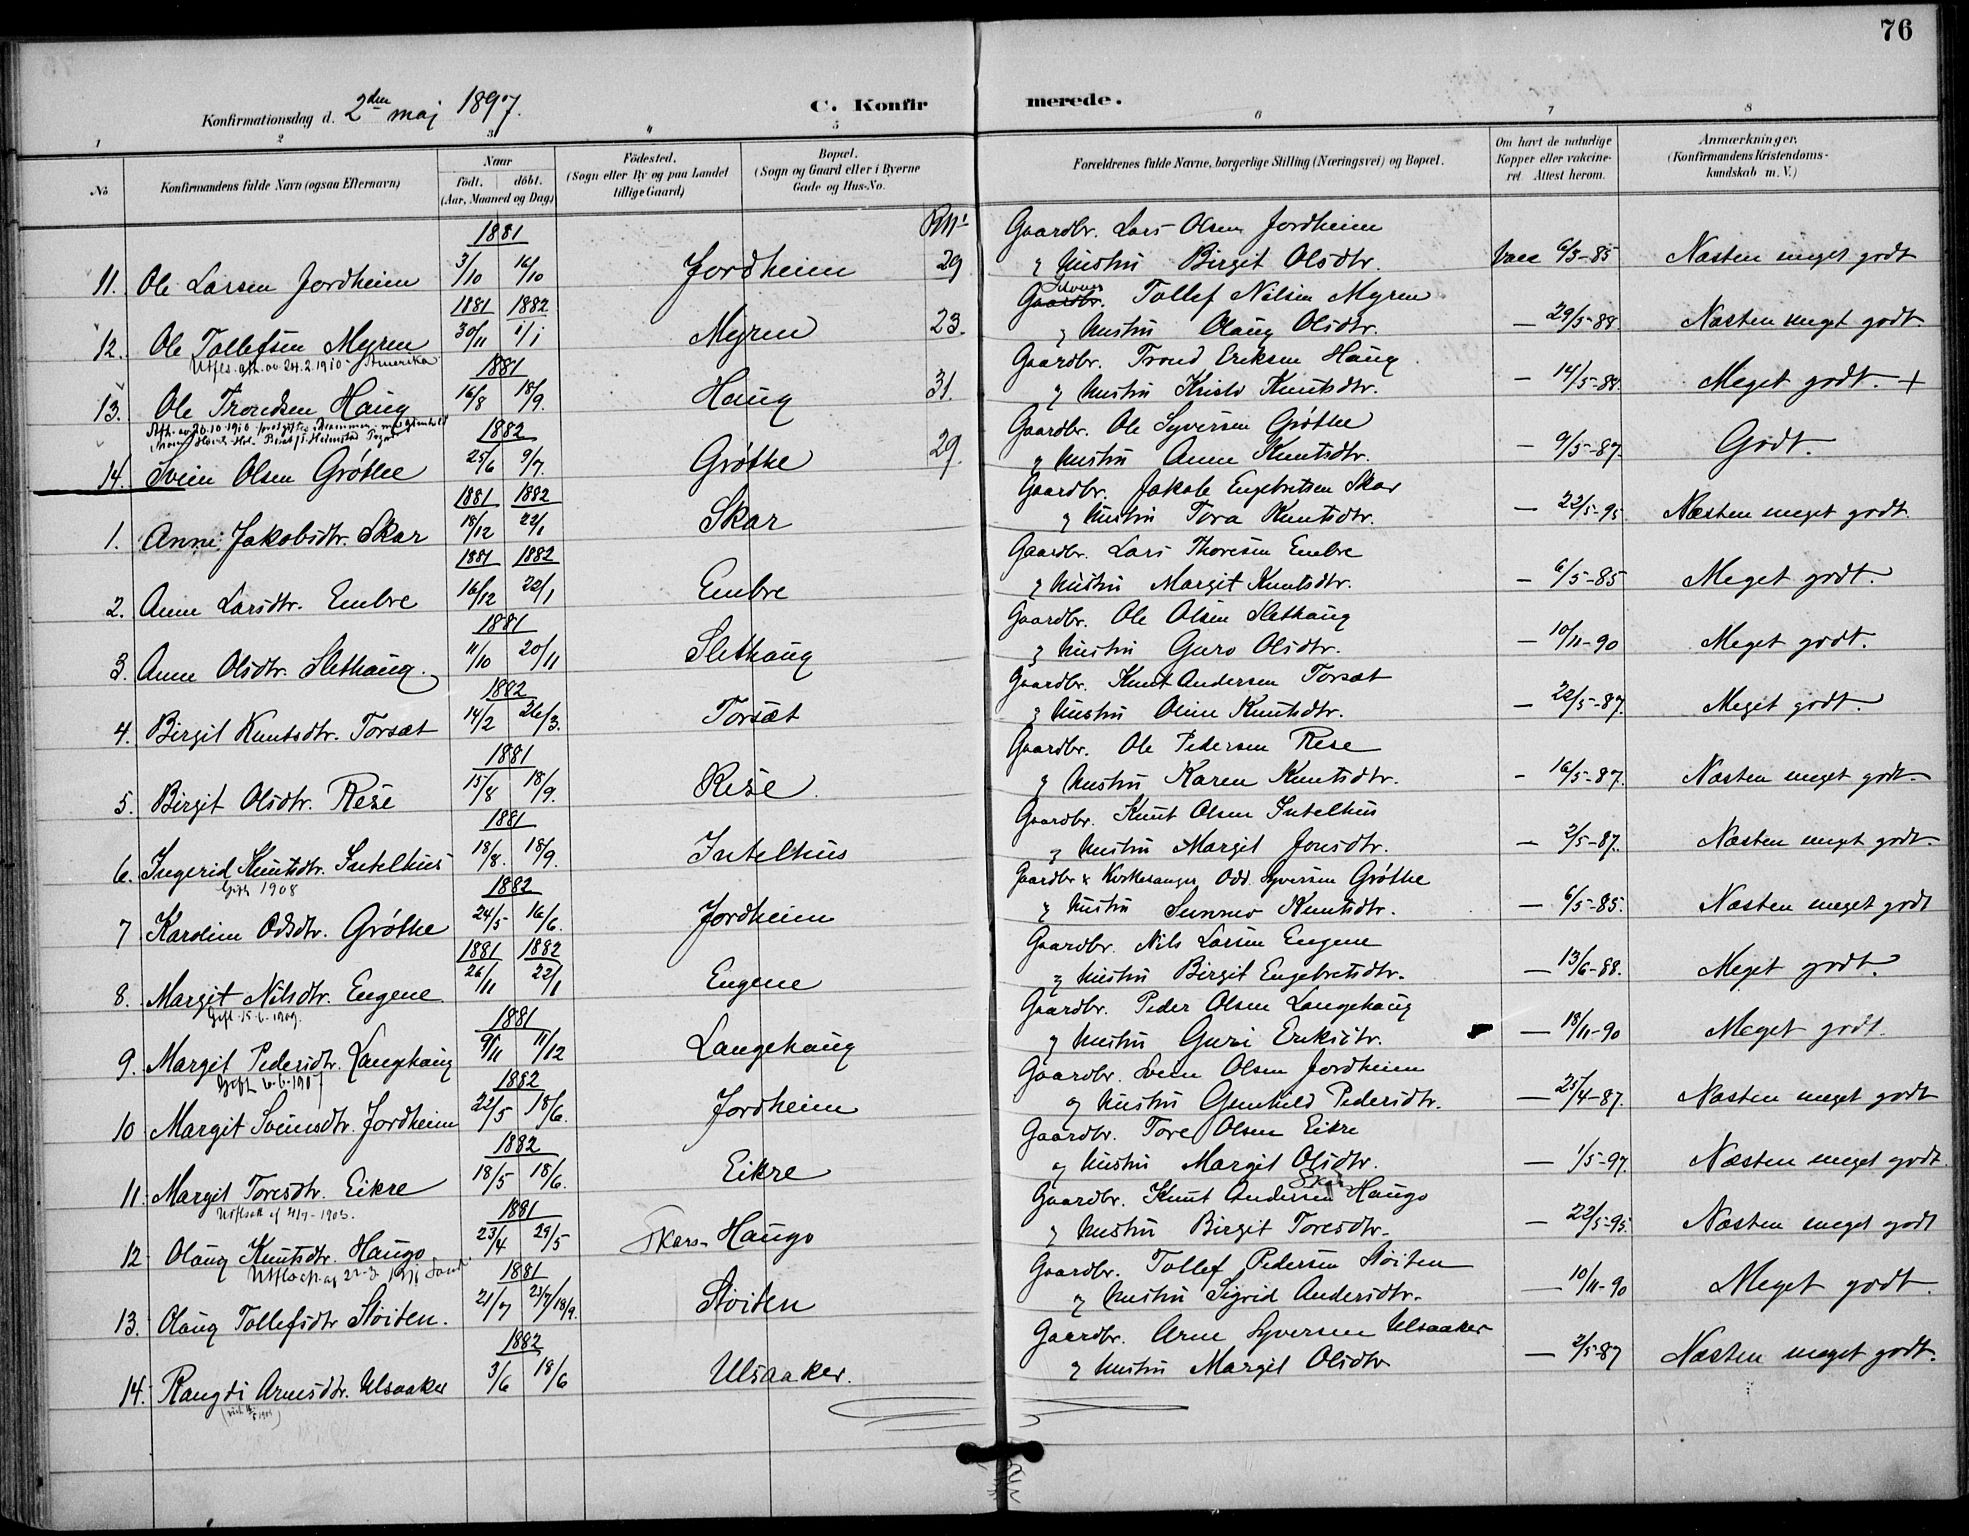 76
Konfirmationsdag d. 2den maj 1897.
C. Konfirmerede.
1 2 3 4 5 6 7 8
No
Konfirmandens fulde Navn (ogsaa Efternavn)
Naar
födt. döbt.
(Aar, Maaned og Dag)
Födested.
(Sogn eller By og paa Landet
tillige Gaard)
Bopæl.
(Sogn og Gaard eller i Byerne
Gade og Hus-No.
Forældrenes fulde Navne, borgerlige Stilling (Næringsvei) og Bopæl.
Om havt de naturlige
Kopper eller vakcine-
ret. Attest herom.
Anmærkninger.
(Konfirmandens Kristendoms-
kundskab m. V.)
1881 Gaardbr. Lars Olsen Jordheim
11. Ole Larsen Jordheim 3/10 16/10 Jordheim 29 og Hustru Birgit Olsdtr. Vacc 6/5-85 Næsten meget godt
1881 1882 Gaardbr. Tollef Nilsen Myren
12. Ole Tollefsen Myren 30/11 1/1 Myren 23. og Hustru Olaug Olsdtr. — 29/5-88 Næsten meget godt.
Utfl. att. av 24.2.1910 Amerika
1881 Gaardbr. Trond Eriksen Haug
13. Ole Trondsen Haug 16/8 18/9. Haug 31. og Hustru Kristi Knutsdtr. — 14/5-88. Meget godt. +
1882 Gaardbr. Ole Syversen Gröthe
14. Svein Olsen Gröthe 25/6 9/7. Gröthe 29. og Hustru Anne Knutsdtr. — 9/5-87 Godt.
1881 1882 Gaardbr. Jakob Engebretsen Skar
1. Anne Jakobsdtr. Skar 18/12 22/1 Skar og Hustru Tora Knutsdtr. — 22/5-95 Næsten meget godt.
1881 1882 Gaardbr. Lars Thoresen Embre
2. Anne Larsdtr. Embre 16/12 22/1 Embre og Hustru Margit Knutsdtr. — 6/5-85 Meget godt.
1881 Gaardbr. Ole Olsen Slethaug
3. Anne Olsdtr. Slethaug. 11/10 20/11 Slethaug og Hustru Guro Olsdtr. — 10/11-90 Meget godt.
1882 Gaardbr. Knut Andersen Torsæt
4. Birgit Knutsdtr. Torsæt 14/2 26/3. Torsæt og Hustru Oline Knutsdtr. — 22/5-87. Meget godt.
1881 Gaardbr. Ole Pedersen Rese
5. Birgit Olsdtr. Rese 15/8 18/9. Rese. og Hustru Karen Knutsdtr. - 16/5-87. Næsten meget godt
1881 Gaardbr. Knut Olsen Intelhus
6. Ingerid Knutsdtr. Intelhus 18/8. 18/9. Intelhus og Hustru Margit Jonsdtr. — 2/5-87. Næsten meget godt.
Gift 1908
1882 Gaardbr & Kirkesanger Odd Syversen Gröthe
7 Karoline Odsdtr. Gröthe 24/5 16/6. Jordheim og Hustru Sunnev Knutsdtr. — 6/5-85. Næsten meget godt
1881 1882 Gaardbr. Nils Larsen Eugene
8. Margit Nilsdtr. Eugene 26/11 22/1 Eugene og Hustru Birgit Engebretsdtr. — 13/6-88. Meget godt.
Gift 15-6-1909.
1881 Gaardbr. Peder Olsen Langehaug
9. Margit Pedersdtr. Langehaug 9/11 11/12 Langehaug og Hustru Guri Eriksdtr. — 18/11-90 Meget godt.
Gift 6-6-1907
1882 Gaardbr. Svein Olsen Jordheim
10 Margit Sveinsdtr. Jordheim 22/5 18/6. Jordheim og Hustru Gunhild Pedersdtr. — 25/4-87. Næsten meget godt
1882 Gaardbr. Tore Olsen Eikre
11. Margit Toresdtr. Eikre 18/5 18/6. Eikre og Hustru Margit Olsdtr. — 1/5-97. Næsten meget godt.
1881 Gaardbr. Knut Andersen Skars Haugo
12 Olaug Knutsdtr. Haugo 23/4 29/5 Skars-Haugo og Hustru Birgit Toresdtr. — 22/5-95. Næsten meget godt
1881 Gaardbr. Tollef Pedersen Stöiten
13. Olaug Tollefsdtr Stöiten. 21/7 23/7 18/9. Stöiten og Hustru Sigrid Andersdtr. — 10/11-90 Meget godt.
1882 Gaardbr. Arne Syversen Ulsaaker
14. Rangdi Arnesdtr. Ulsaaker 3/6 18/6 Ulsaaker. og Hustru Margit Olsdtr — 2/5-87 Næsten meget godt.